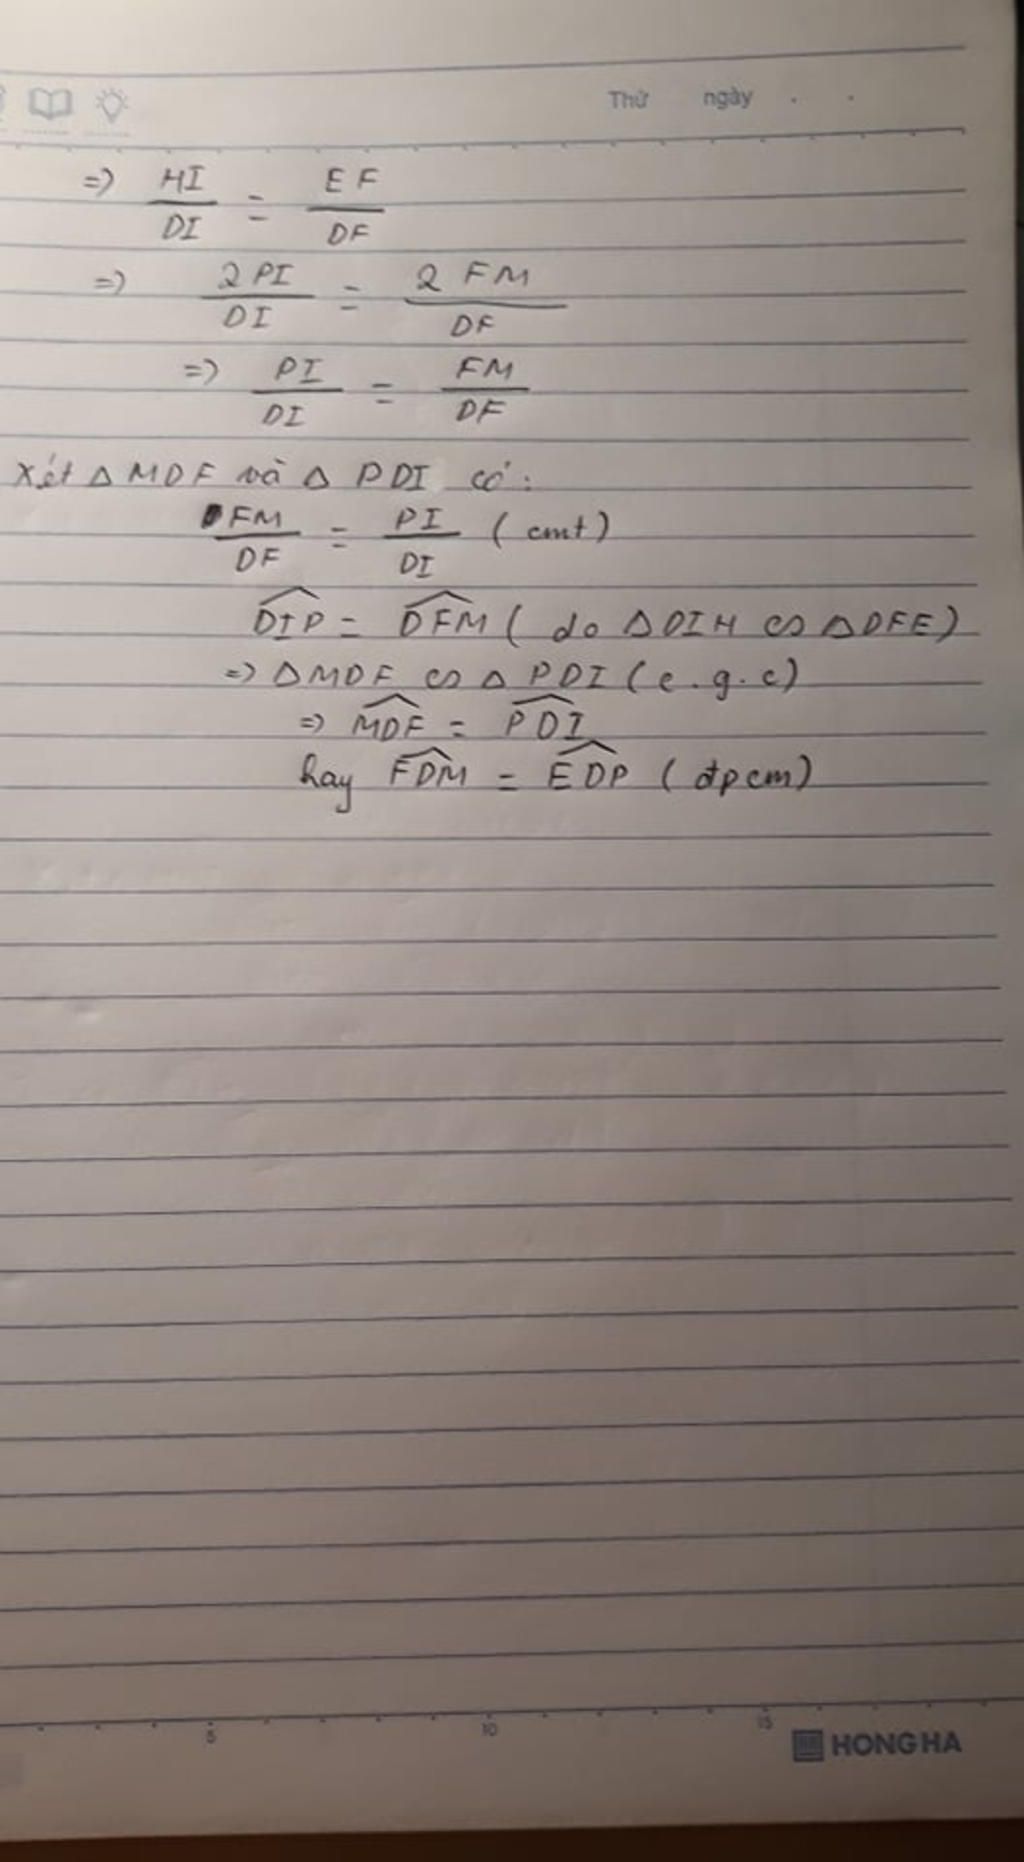 Thứ ngày . .
=> HI/DI = EF/DF
=> 2PI/DI = 2FM/DF
=> PI/DI = FM/DF
Xét △MDF và △PDI có:
FM/DF = PI/DI (cmt)
DIP^ = DFM^ (do △DIH ∽ △DFE)
=> △MDF ∽ △PDI (c.g.c)
=> MDF^ = PDI^
hay FDM^ = EDP^ (đpcm)
5 10 15
HONG HA